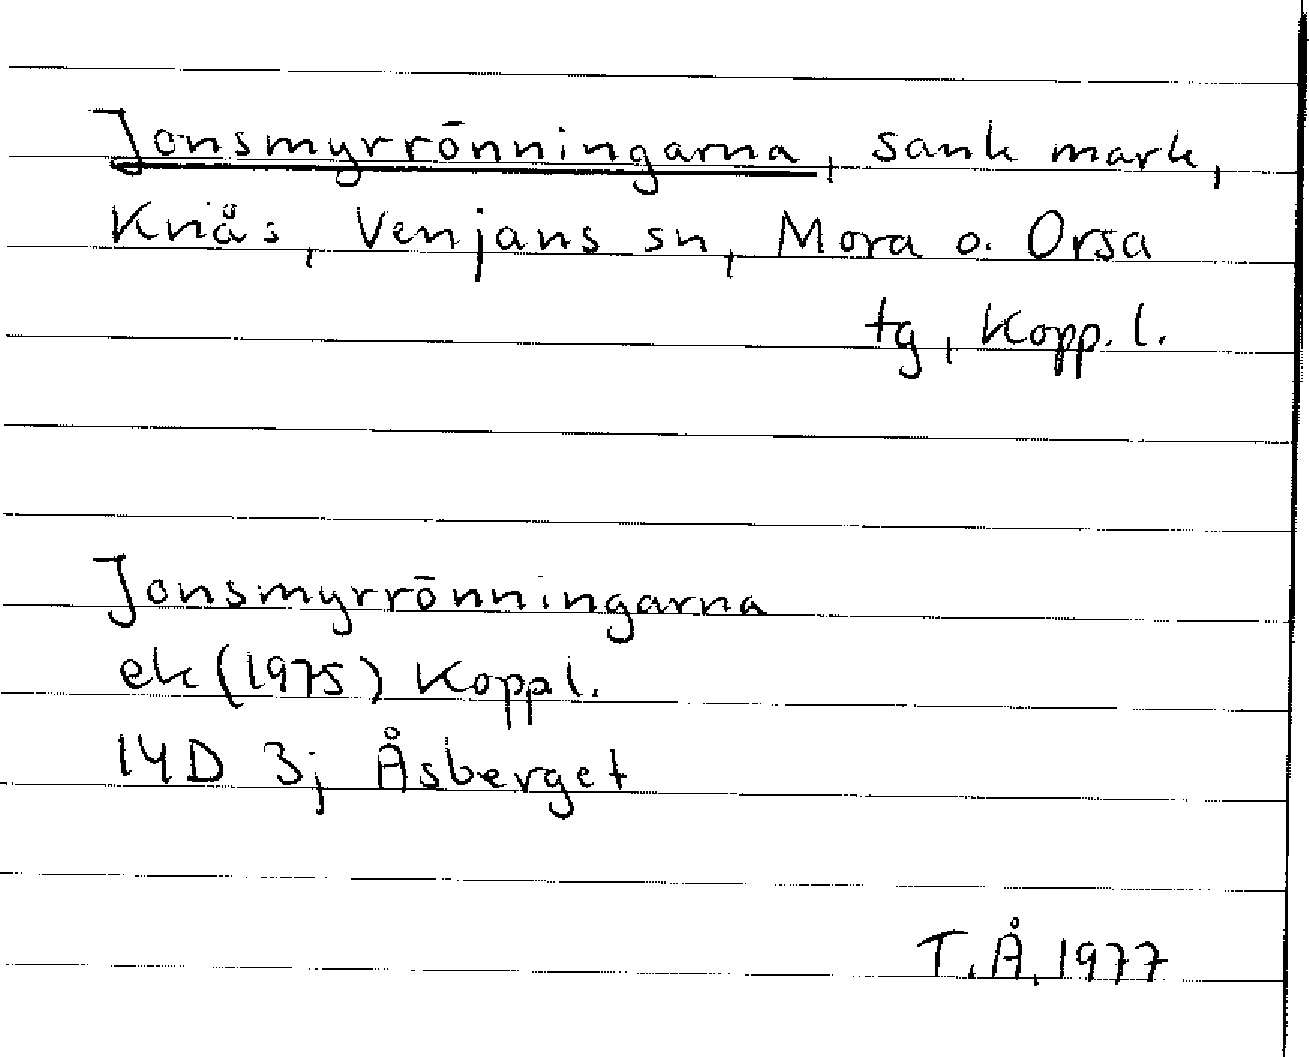 Jonsmyrrönningarna, sank mark,
Knås, Venjans sn, Mora o. Orsa
tg, Kopp. l.
Jonsmyrrönningarna
ek (1975) Koppl.
14D 3j Åsberget
T.Å. 1977